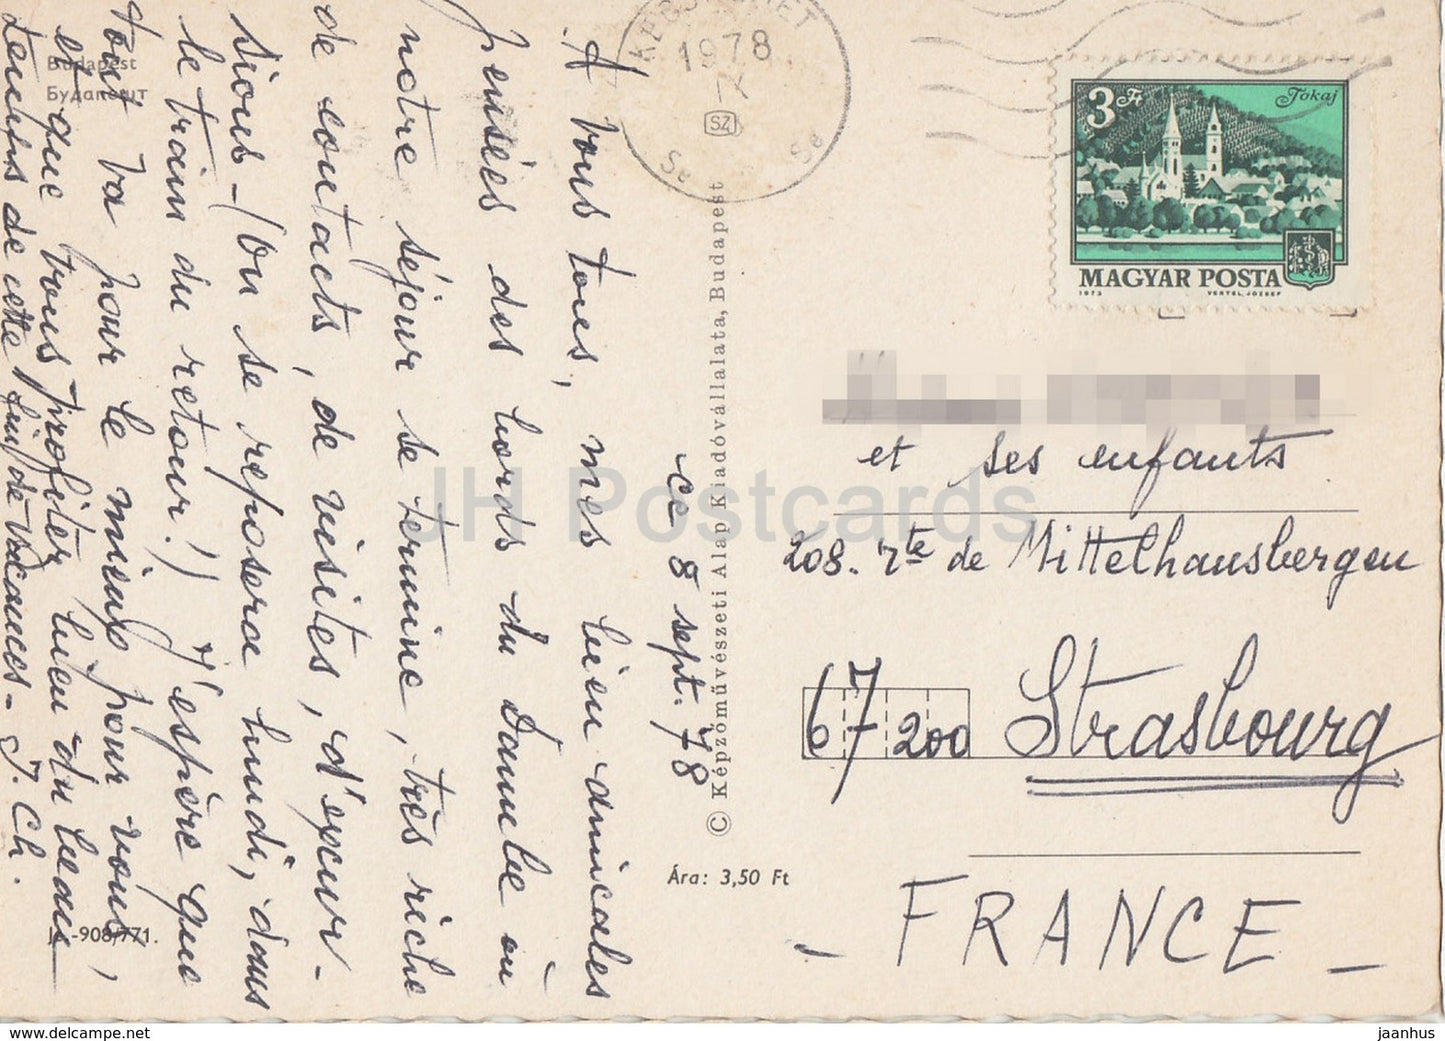 ce 8 sept. 78
A vous tous, mes bien amicales
pensées des bords du Danube où
notre séjour se termine, très riche
de contacts, de visites, d'excur-
sions - (on se reposera lundi, dans
le train du retour!) J'espère que
tout va pour le mieux pour vous,
et que vous profitez bien du beau
temps de cette fin de vacances - J. Ch.
Budapest
Будапешт
-908/771.
© Képzőművészeti Alap Kiadóvállalata, Budapest
Ára: 3,50 Ft
1978
IX
SZ
3 Ft
Tokaj
MAGYAR POSTA
1973
VERTEL JÓZSEF
et ses enfants
208. rte de Mittelhausbergen
67200 Strasbourg
- FRANCE -
JH Postcards
www.delcampe.net
jaanhus